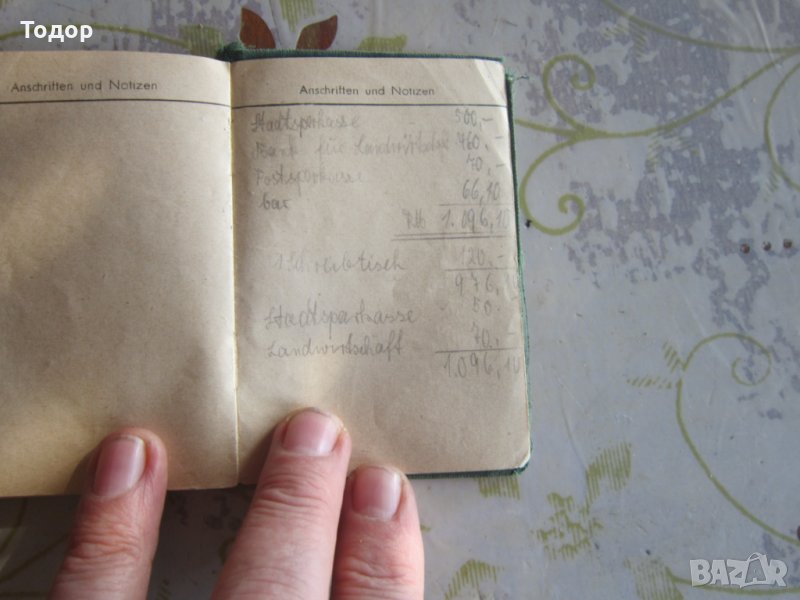 Todor
Anschriften und Notizen
Anschriften und Notizen
Stadtsparkasse 500,-
Bank für Landwirtschaft 460,-
Postsparkasse 70,-
bar 66,10
RM 1.096,10
1 Schreibtisch 120,-
976,10
Stadtsparkasse 50
Landwirtschaft 70,-
1.096,10
BAZAR.bg